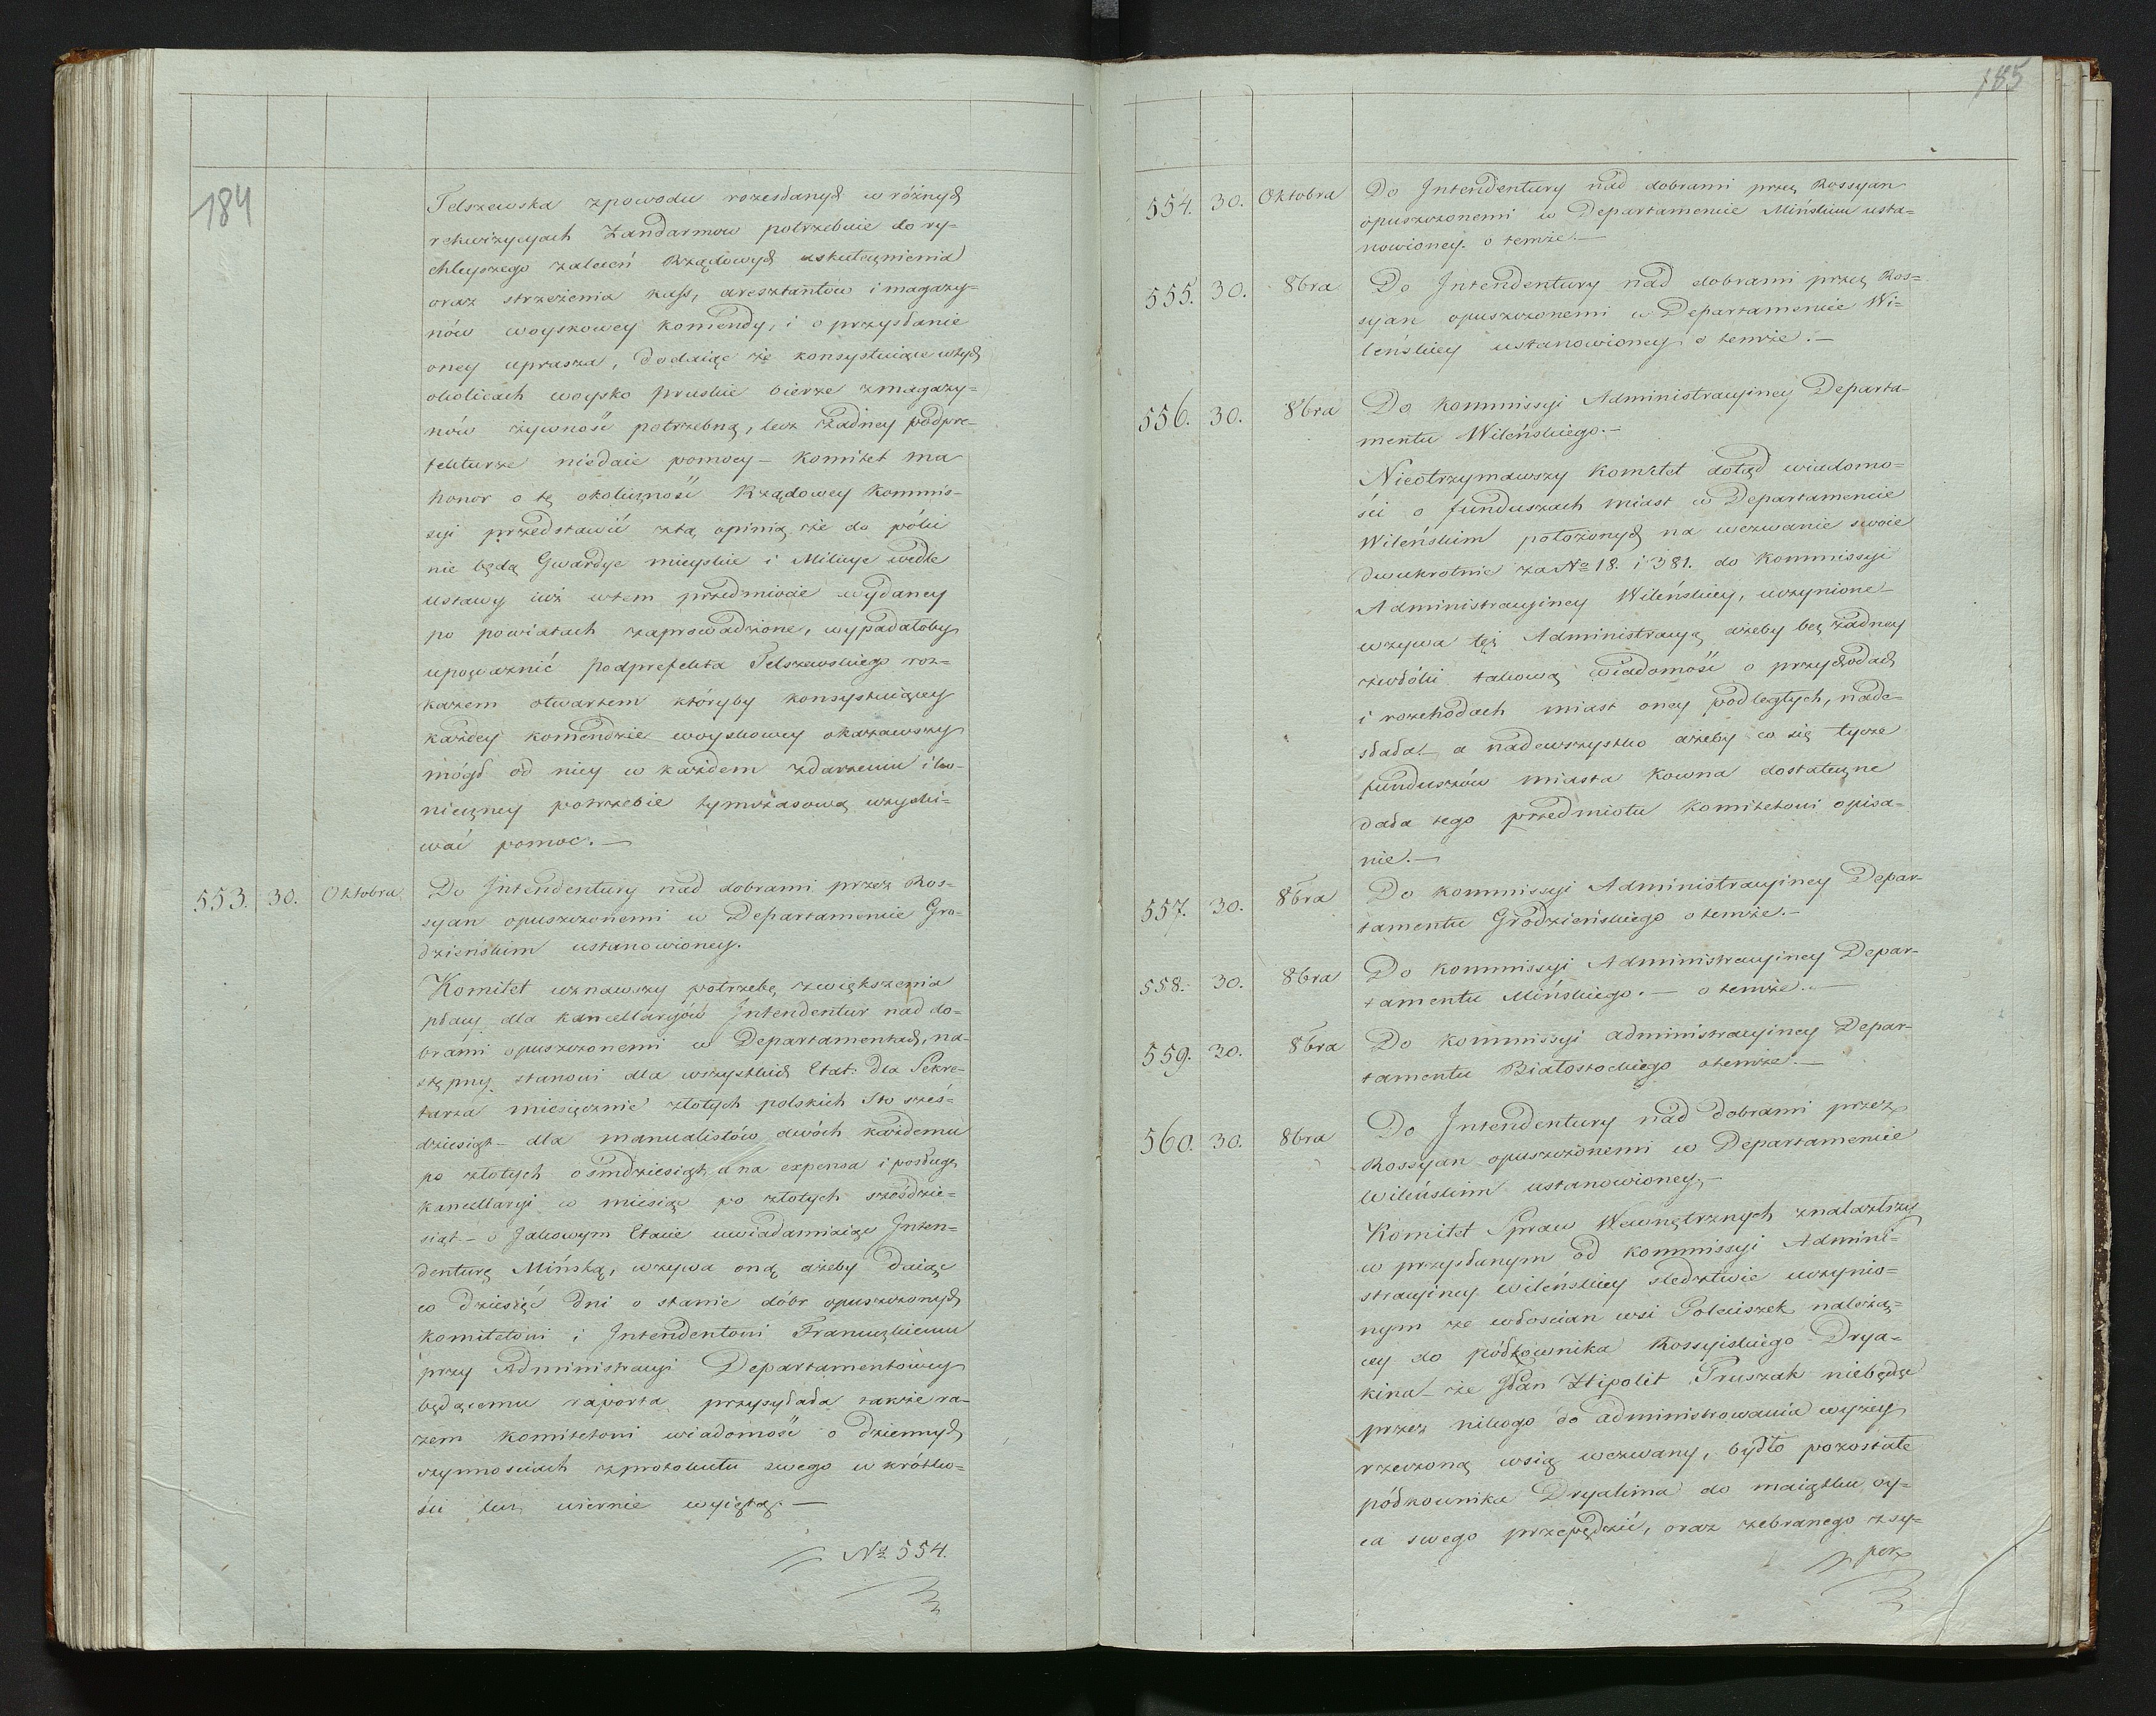 184
Telszewska zpowodu rozesłanych w różnych
rekwizycyach Żandarmow potrzebuie do ry=
chleyszego zaleceń Rządowych uskutecznienia
oraz strzeżenia kass, aresztantow i magazy=
nów woyskowey komendy, i o przysłanie
oney uprasza, dodaiąc że konsystuiące wtych
okolicach woysko pruskie bierze zmagazy=
nów żywność potrzebną, lecz żadney podpre=
fekturze niedaie pomocy – Komitet ma
honor o tę okoliczność Rządowey Kommis=
syi przedstawić ztą opinią że do póki
nie będą Gwardye mieyskie i Milicye wedle
ustawy iuż wtem przedmiocie wydaney
po powiatach zaprowadzone, wypadałoby
upoważnić podprefekta Telszewskiego roz=
kazem otwartem któryby konsystuiącey
każdey komendzie woyskowey okazawszy
mógł od niey w każdem zdarzeniu i ko=
nieczney potrzebie tymczasową uzyski=
wać pomoc. —
553. 30. Oktobra Do Intendentury nad dobrami przez Ros=
syan opuszczonemi w Departamencie Gro=
dzieńskim ustanowioney.
Komitet uznawszy potrzebę zwiększenia
płacy dla kancellaryów Intendentur nad do=
brami opuszczonemi w Departamentach, na=
stępny stanowi dla wszystkich Etat: dla Sekre=
tarza miesięcznie złotych polskich Sto sześ=
dziesiąt – dla manualistów dwóch każdemu
po złotych ośmdziesiąt, a na expensa i posługę
kancellaryi w miesiąc po złotych sześdzie=
siąt – o Jakowym Etacie uwiadamiaiąc Inten=
denturę Mińską, wzywa oną ażeby daiąc
co dziesięć dni o stanie dóbr opuszczonych
komitetowi i Intendentowi Francuzkiemu
przy Administracyi Departamentowey
będącemu raporta, przysyłała także ra=
zem Komitetowi wiadomość o dziennych
czynnościach zprotokułu swego w krótko=
ści lecz wiernie wyiętą. —
№ 554.
185
554. 30. Oktobra Do Intendentury nad dobrami przez Rossyan
opuszczonemi w Departamencie Mińskim usta=
nowioney. o temże. —
555. 30. 8bra Do Intendentury nad dobrami przez Ros=
syan opuszczonemi w Departamencie Wi=
leńskiey ustanowioney o temże. —
556. 30. 8bra Do Kommissyi Administracyiney Departa=
mentu Wileńskiego. –
Nieotrzymawszy Komitet dotąd wiadomo=
ści o funduszach miast w Departamencie
Wileńskim położonych na wezwanie swoie
dwukrotnie za № 18. i 381. do Kommissyi
Administracyiney Wileńskiey, uczynione
wzywa tęż Administracyą ażeby bez żadney
zwłoki takową wiadomość o przychodach
i rozchodach miast oney podległych, nade=
słała – a nadewszystko ażeby co się tycze
funduszów miasta Kowna dostateczne
dała tego przedmiotu Komitetowi opisa=
nie. —
557. 30. 8bra Do Kommissyi Administracyiney Depar=
tamentu Grodzieńskiego o temże. –
558. 30. 8bra Do Kommissyi Administracyiney Depar=
tamentu Mińskiego. — o temże. —
559. 30. 8bra Do Kommissyi administracyiney Depar=
tamentu Białostockiego otemże. —
560. 30. 8bra Do Intendentury nad dobrami przez
Rossyan opuszczonemi w Departamencie
Wileńskim ustanowioney. –
Komitet Spraw Wewnętrznych znalazłszy
w przysłanym od kommissyi Admini=
stracyiney Wileńskiey sledztwie uczynio=
nym ze włoscian wsi Poleiszek należą=
cey do półkownika Rossyiskiego Drya=
kina – że Pan Hipolit Pruszak niebędąc
przez nikogo do administrowania wyżey
rzeczoną wsią wezwany, bydło pozostałe
półkownika Dryakina do maiątku oy=
ca swego przepędzić, oraz zebranego zsy=